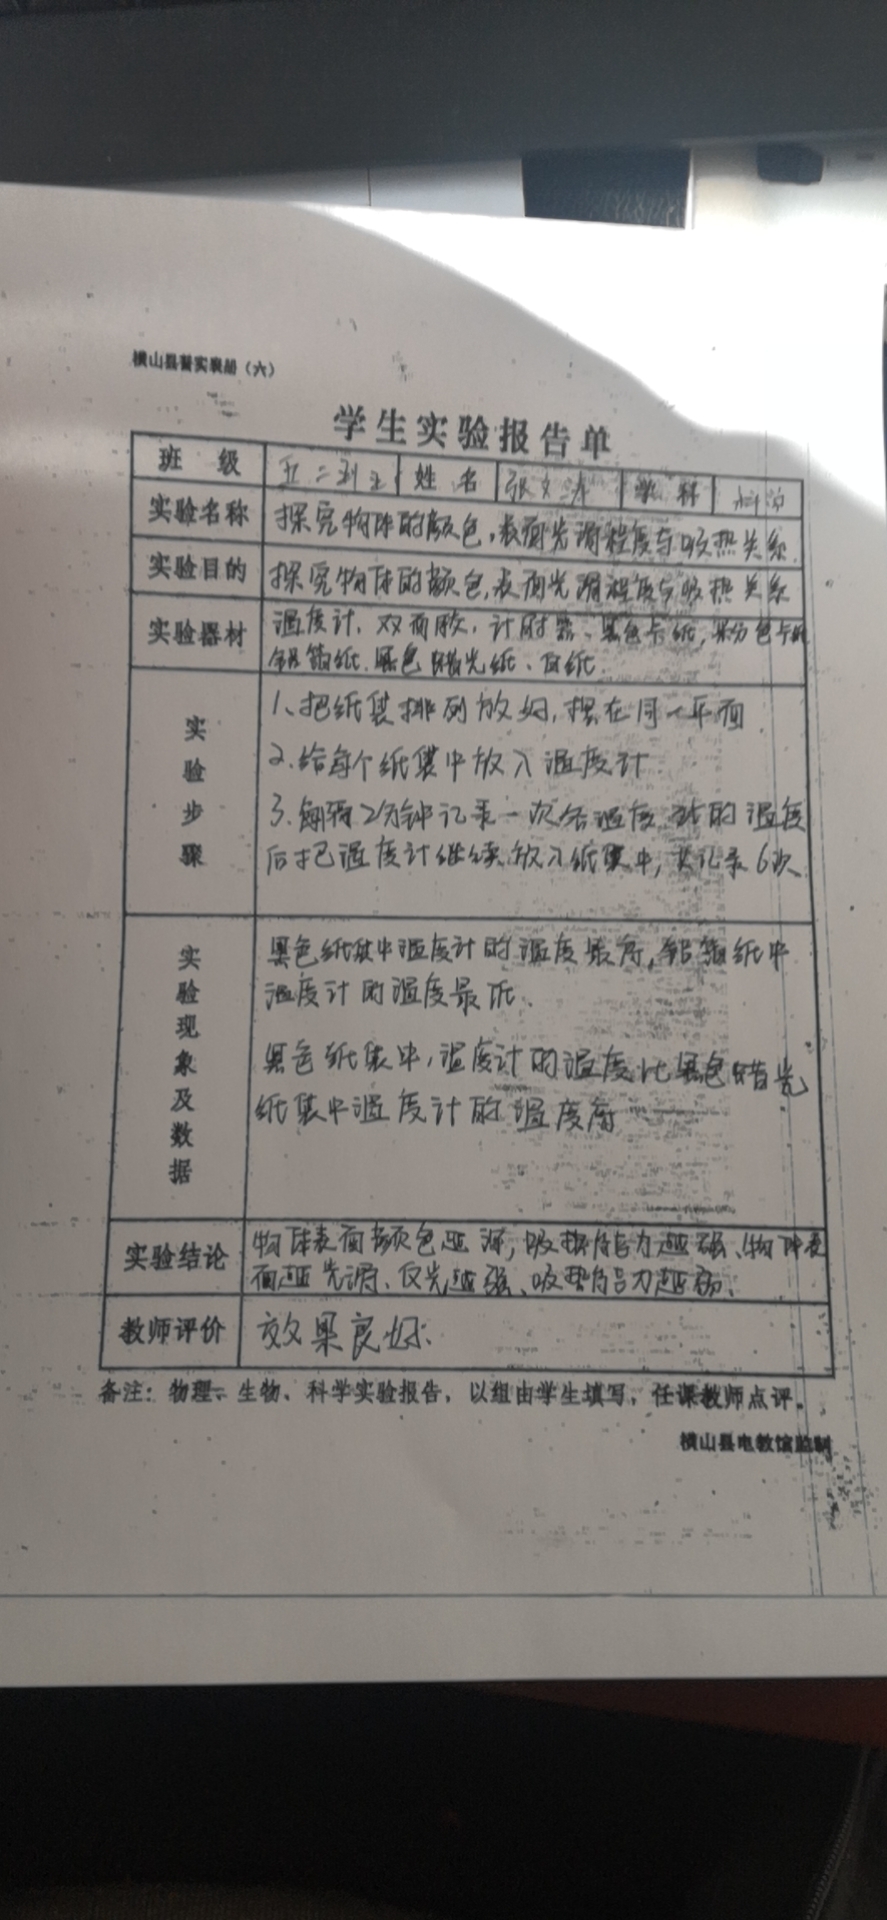 横山县普实表册（六）
学生实验报告单
班 级 五二 姓 名 张文 学 科 科学
实验名称 探究物体的颜色,表面光滑程度与吸热关系
实验目的 探究物体的颜色,表面光滑程度与吸热关系
实验器材 温度计、双面胶、计时器、黑色卡纸,粉色卡纸
铝箔纸、黑色蜡光纸、白纸
实验步骤 1、把纸袋排列放好,摆在同一平面
2、给每个纸袋中放入温度计
3、每隔2分钟记录一次各温度计的温度
后把温度计继续放入纸袋中,共记录6次
实验现象及数据 黑色纸袋中温度计的温度最高,铝箔纸中
温度计的温度最低、
黑色纸袋中,温度计的温度比黑色蜡光
纸袋中温度计的温度高
实验结论 物体表面颜色越深,吸热能力越强、物体表
面越光滑、反光越强、吸热能力越弱、
教师评价 效果良好.
备注：物理、生物、科学实验报告，以组由学生填写，任课教师点评。
横山县电教馆监制